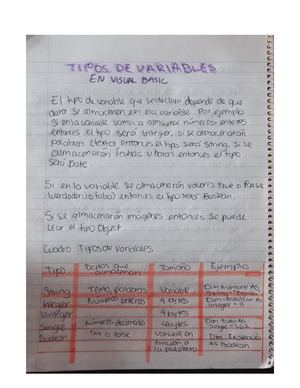 TIPOS DE VARIABLES
EN VISUAL BASIC
El tipo de variable que se declara depende de que
dato se almacenará en su variable. Por ejemplo
si en la variable vamos a almacenar números enteros
entonces el tipo será Integer, si se almacenarán
palabras (texto) entonces el tipo será String, si se
almacenarán fechas u horas entonces el tipo
será Date.
Si en la variable se almacenarán valores true o False
(verdadero o falso) entonces el tipo será Boolean.
Si se almacenarán imágenes entonces se puede
usar el tipo Object
Cuadro Tipos de Variables
Tipo Datos que almacenan Tamaño Ejemplo
String Texto palabras Variable Dim Nombre As String
Integer Números enteros 4 bytes Dim As Integer = 5
4 bytes
Single Números decimales 4 bytes Dim As Single
Boolean true o False Variable en función a la plataforma Dim Existencia As Boolean